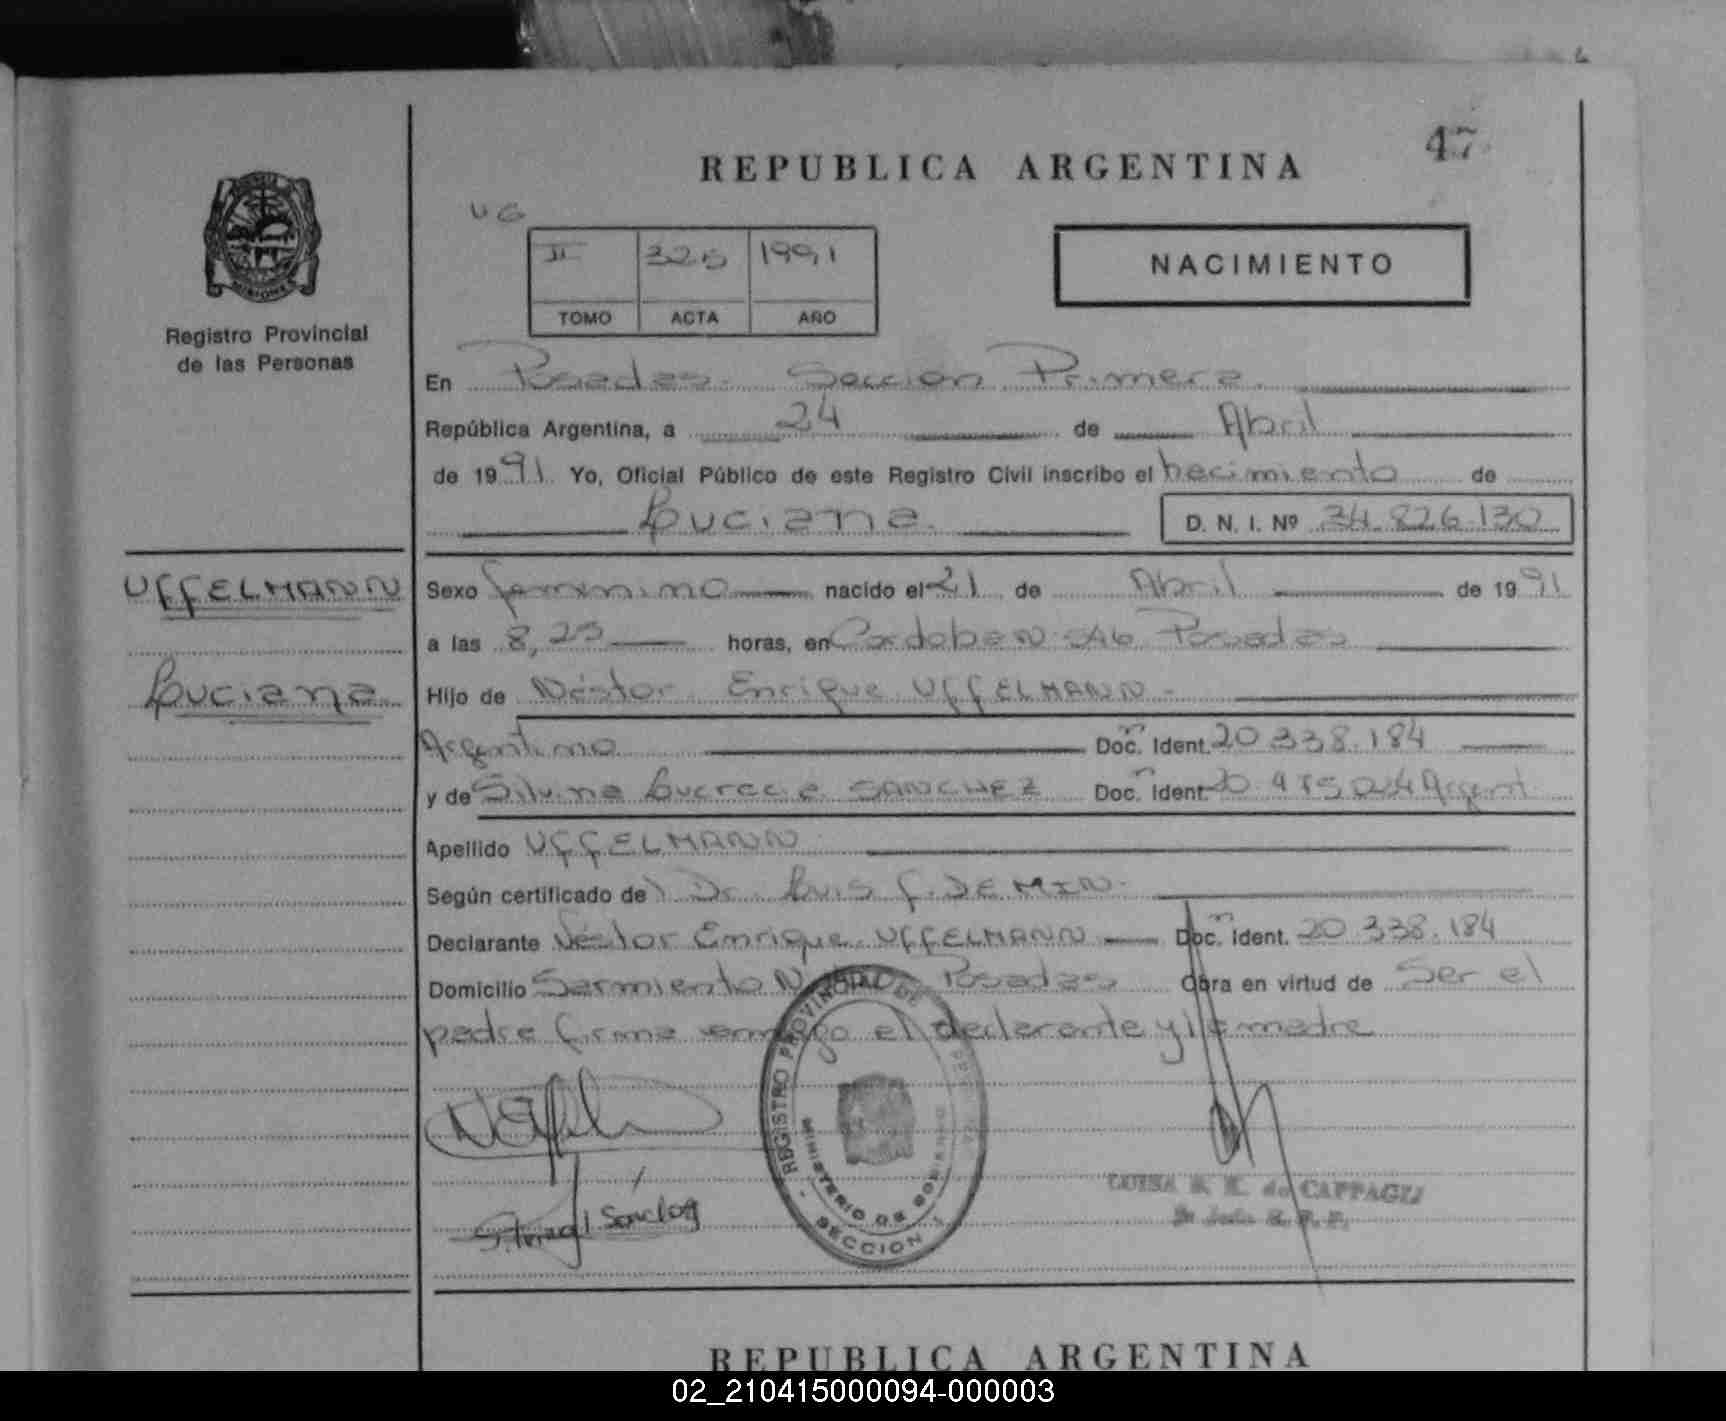 47
REPUBLICA ARGENTINA
UG
II 325 1991
TOMO ACTA AÑO
NACIMIENTO
MISIONES
Registro Provincial
de las Personas
En Posadas. Sección Primera.
República Argentina, a 24 de Abril
de 1991. Yo, Oficial Público de este Registro Civil inscribo el nacimiento de
Luciana. D. N. I. Nº 34.826.130
UFFELMANN
Luciana
Sexo femenino nacido el 21 de Abril de 1991
a las 8,25 horas, en Cordoba N 546 Posadas
Hijo de Néstor Enrique UFFELMANN.
Argentino Doc. Ident. 20.338.184
y de Silvina Lucrecia SANCHEZ Doc. Ident. Argent.
Apellido UFFELMANN
Según certificado del Dr. Luis F. DEMIN.
Declarante Néstor Enrique UFFELMANN Doc. Ident. 20.338.184
Domicilio Sarmiento N Posadas Obra en virtud de Ser el
padre firma conmigo el declarante y la madre
REGISTRO PROVINCIAL DE
MINISTERIO DE GOBIERNO
SECCION 1
LUISA de CAPPAGLI
REPUBLICA ARGENTINA
02_210415000094-000003